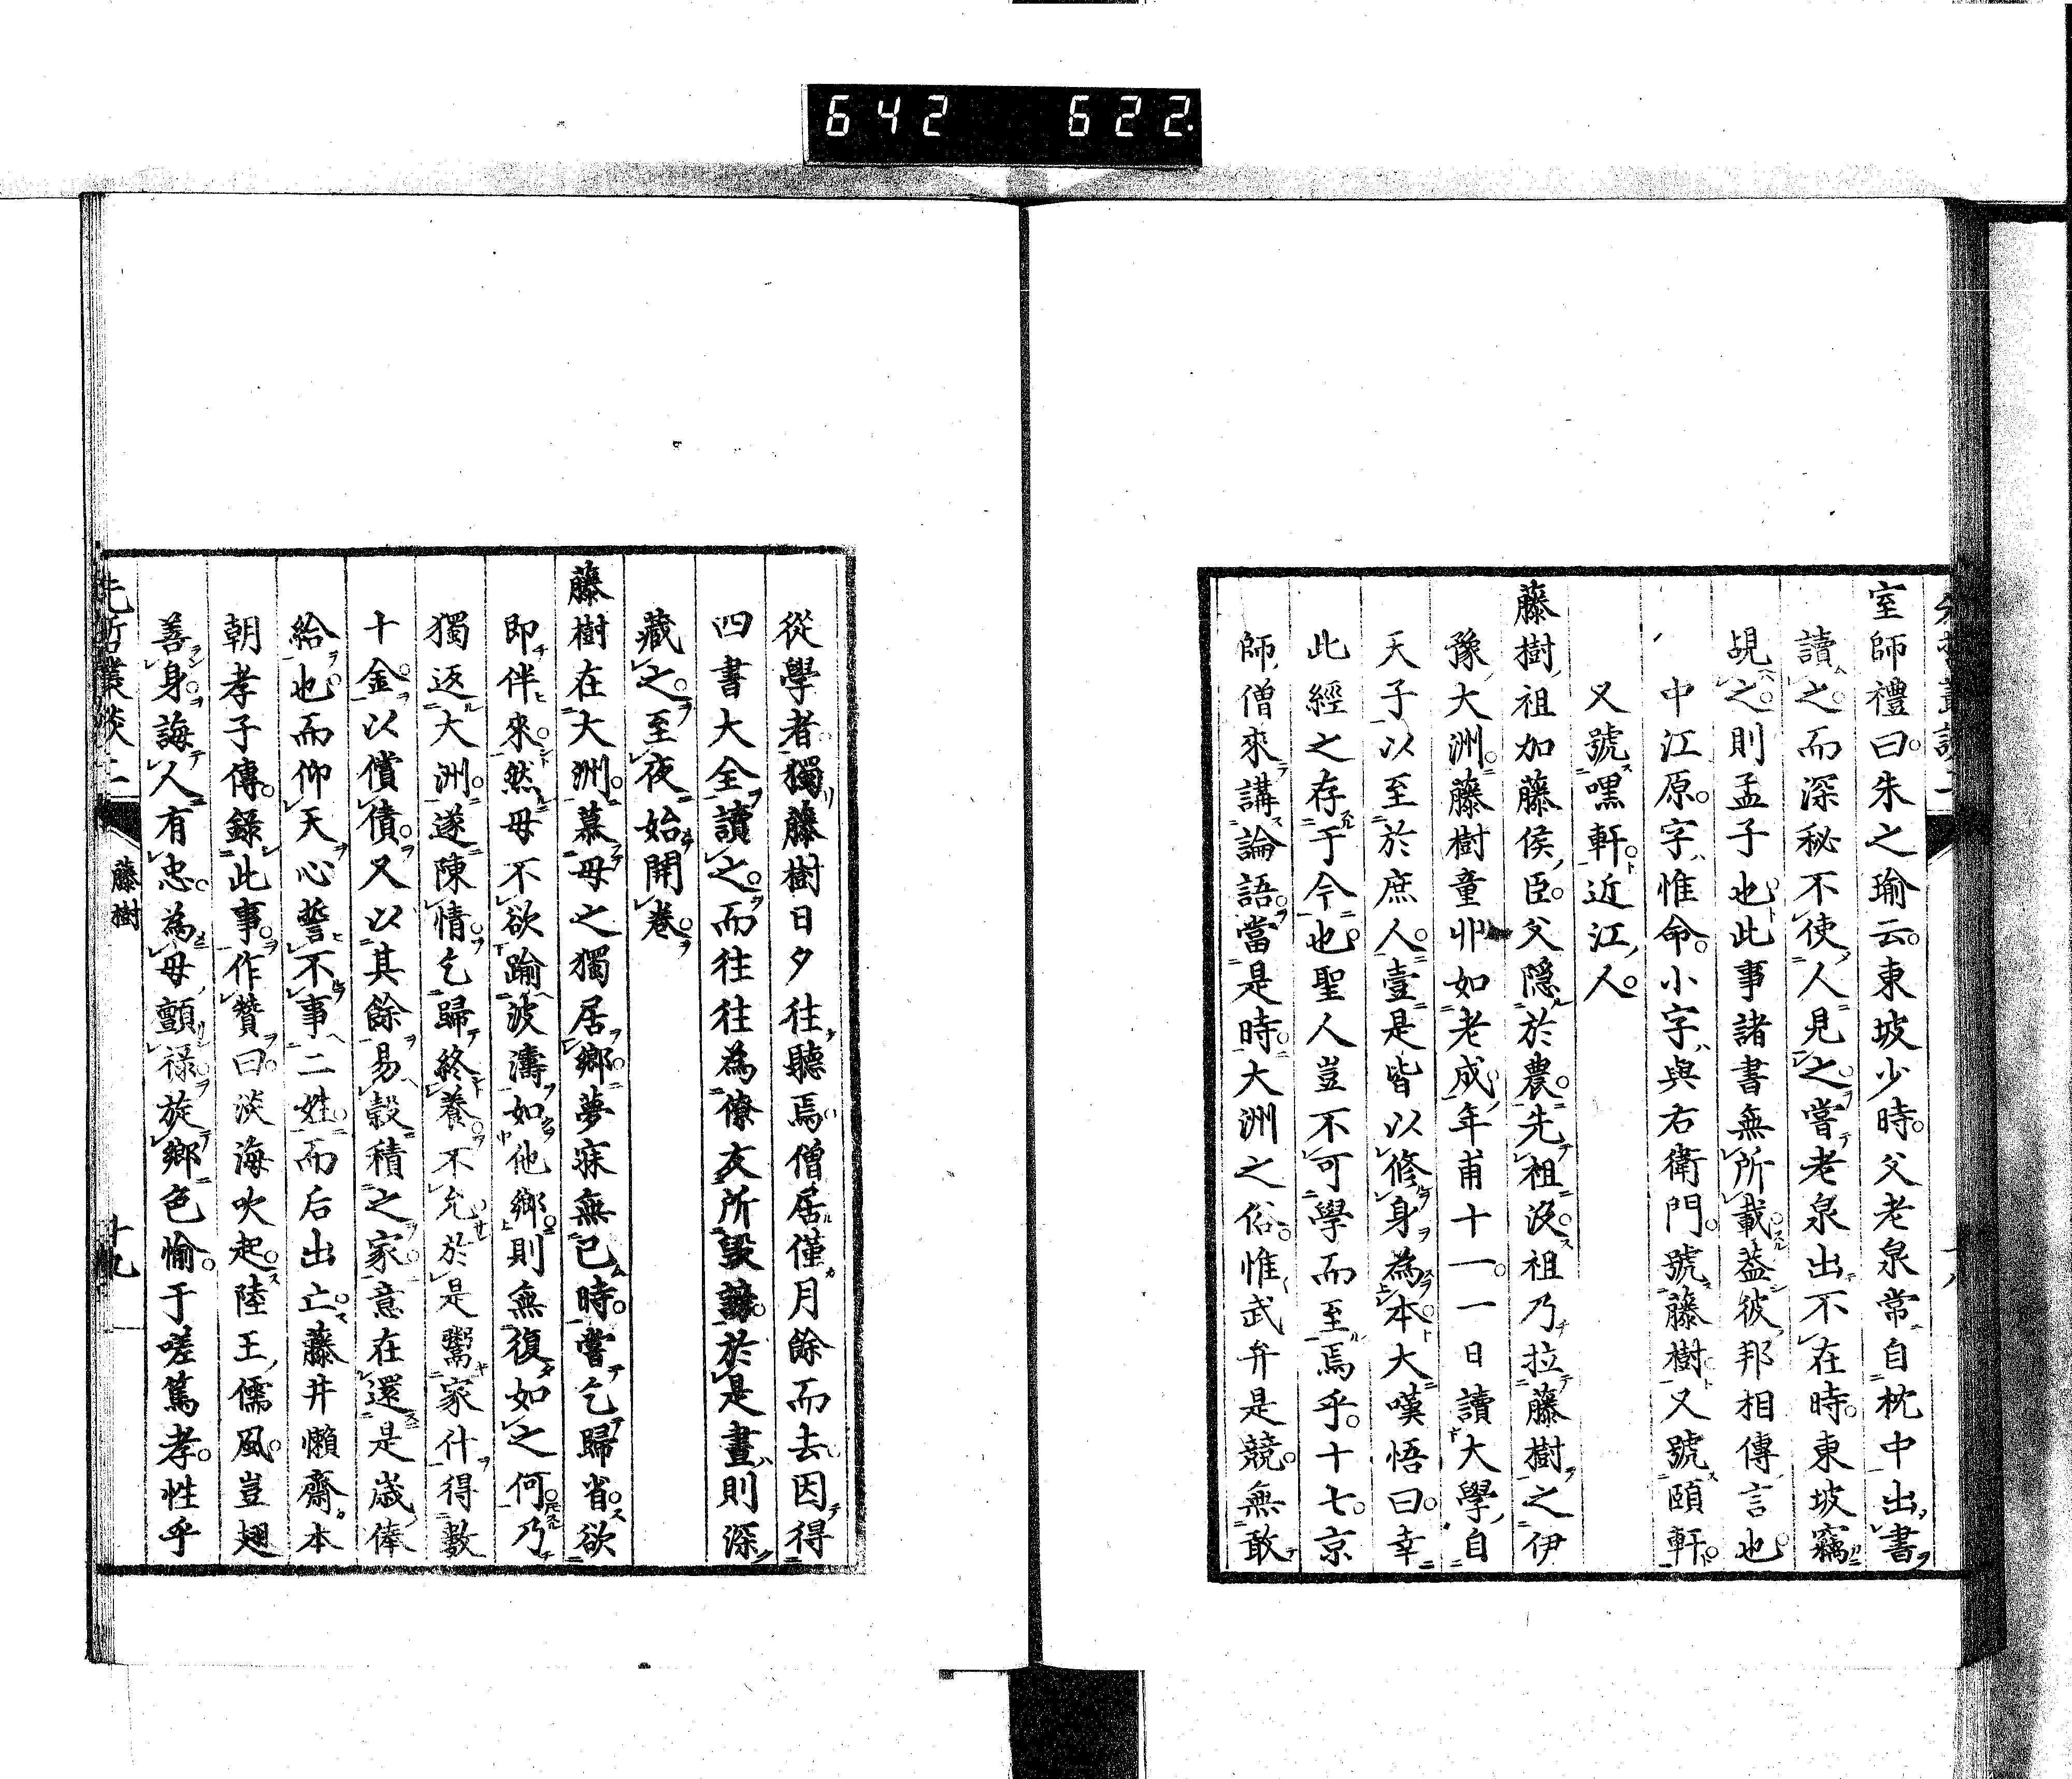 642 622.
室師禮曰。朱之瑜云。東坡少時。父老泉常自枕中出書
讀之。而深秘不使人見之。嘗老泉出不在時。東坡竊
覘之。則孟子也。此事諸書無所載。葢彼邦相傳言也。
中江原。字惟命。小字與右衛門。號藤樹。又號頤軒。
又號嘿軒。近江人。
藤樹祖加藤侯臣。父隱於農。先祖沒。祖乃拉藤樹之伊
豫大洲。藤樹童丱如老成。年甫十一。一日讀大學。自
天子以至於庶人。壹是皆以修身為本。大嘆悟曰。幸
此經之存于今也。聖人豈不可學而至焉乎。十七。京
師僧來講論語。當是時。大洲之俗。惟武弁是競。無敢
從學者。獨藤樹日夕往聽焉。僧居僅月餘而去。因得
四書大全讀之。而往往為僚友所毀謗。於是晝則深
藏之。至夜始開卷。
藤樹在大洲。慕母之獨居鄉。夢寐無已時。嘗乞歸省。欲
即伴來。然母不欲踰波濤如他鄉。則無復如之何。乃
獨返大洲。遂陳情乞歸終養。不允。於是鬻家什得數
十金。以償債。又以其餘易穀積之家。意在還是歲俸
給也。而仰天心誓不事二姓。而后出亡。藤井懶齋本
朝孝子傳。錄此事。作贊曰。淡海吹起。陸王儒風。豈翅
善身。誨人有忠。為母顫祿。旋鄉色愉。于嗟篤孝。性乎
先哲叢談二
藤樹
十九